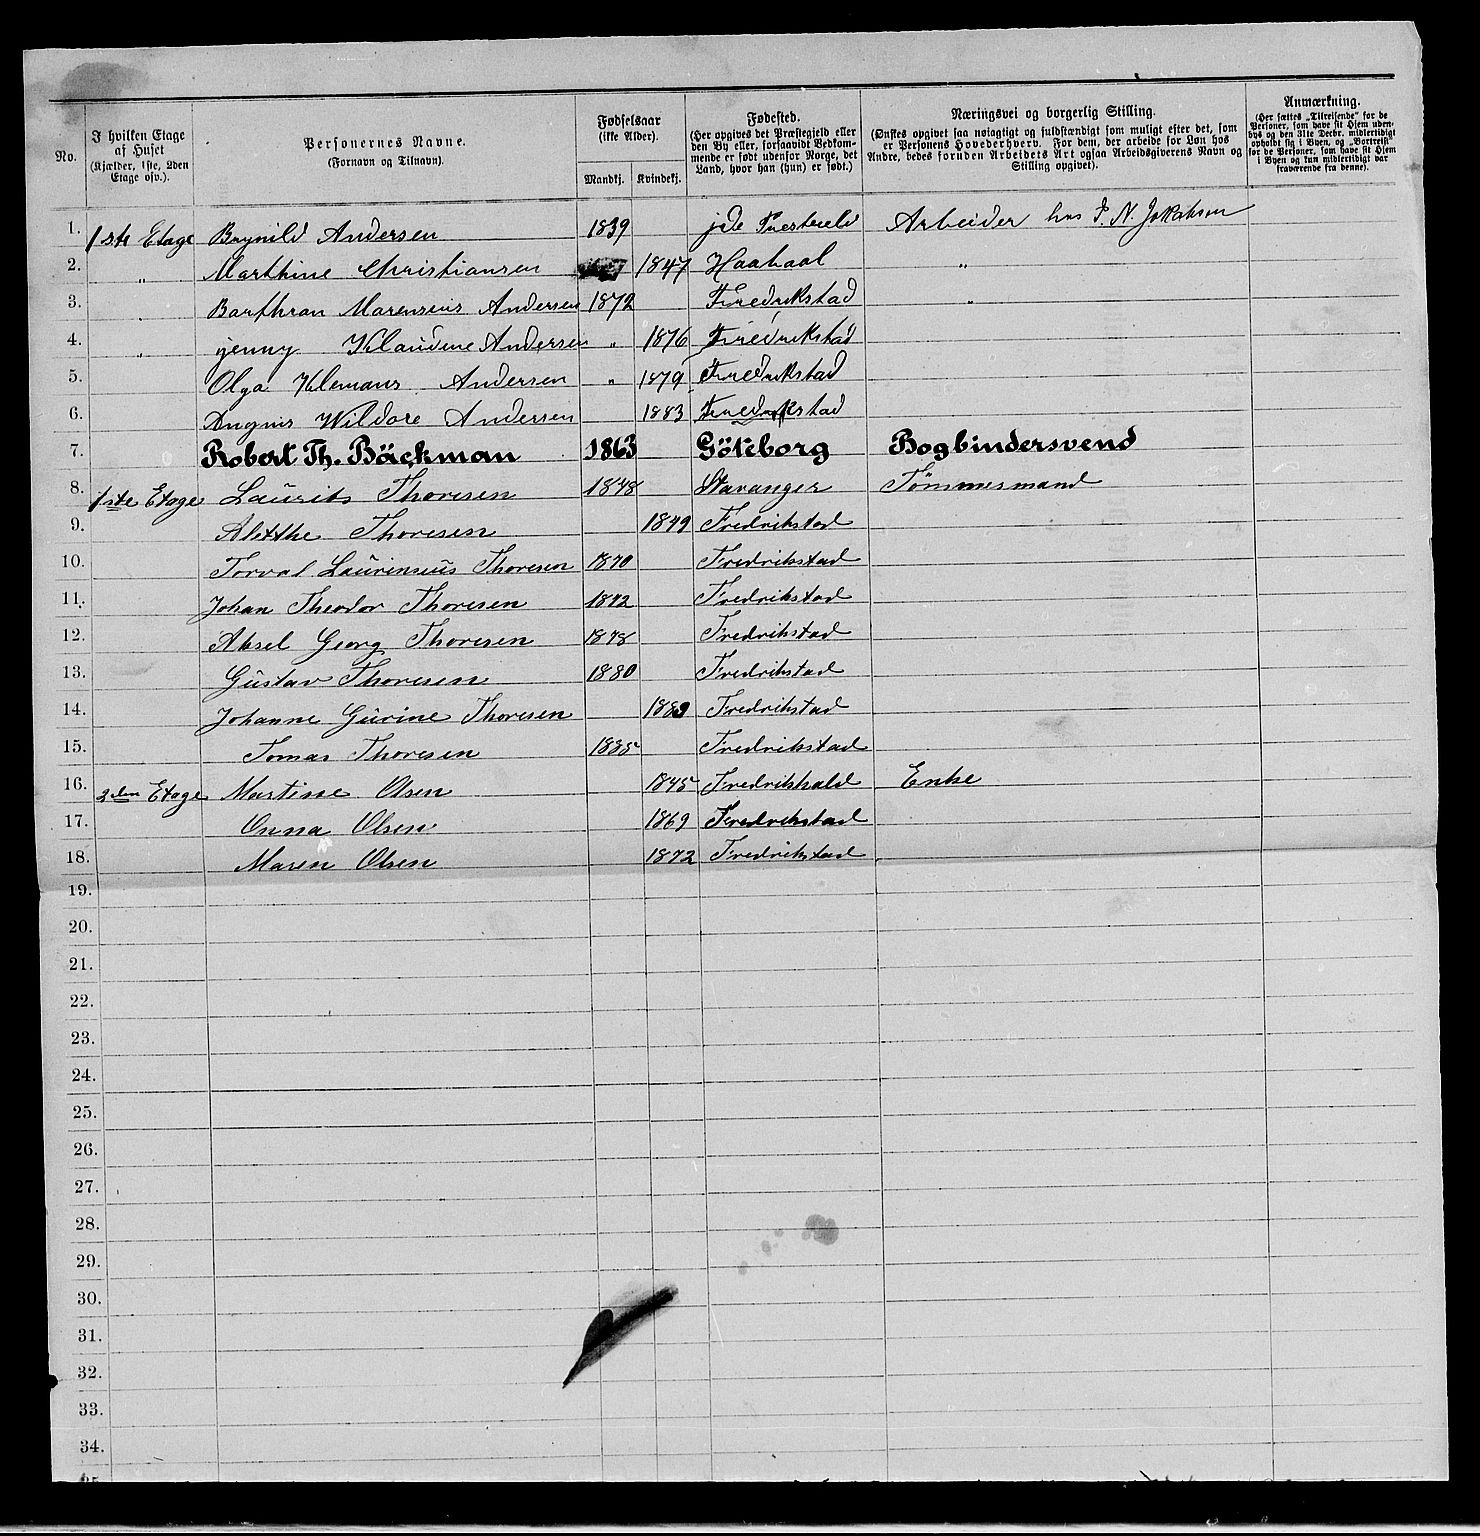 No.
I hvilken Etage af Huset (Kjælder, 1ste, 2den Etage osv.).
Personernes Navne. (Fornavn og Tilnavn).
Fødselsaar (ikke Alder). Mandkj. Kvindekj.
Fødested. (Her opgives det Præstegjeld eller den By eller, forsaavidt Vedkommende er født udenfor Norge, det Land, hvor han (hun) er født.)
Næringsvei og borgerlig Stilling. (Ønskes opgivet saa nøiagtigt og fuldstændigt som muligt efter det, som er Personens Hovederhverv. For dem, der arbeide for Løn hos Andre, bedes foruden Arbeidets Art ogsaa Arbeidsgiverens Navn og Stilling opgivet).
Anmærkning. (Her sættes „Tilreisende“ for de Personer, som have sit Hjem udenbys og den 31te Decbr. midlertidigt opholdt sig i Byen, og „Bortreist“ for de Personer, som have sit Hjem i Byen og kun midlertidigt var fraværende fra denne).
1. 1ste Etage Brynild Andersen 1839 Arbeider hos P. N. Jakobsen
2. „ Marthine Christiansen 1847 Haabaal „
3. „ Barthran Marensius Andersen 1872 Fredrikstad „
4. „ jenny Klaudine Andersen „ 1876 Fredrikstad
5. Olga Klemans Andersen „ 1879 Fredrikstad
6. Wildare Andersen 1883 Fredrikstad
7. Robert Th. Bäckman 1863 Göteborg Bogbindersvend
8. 1ste Etage Laurits Thoresen 1848 Stavanger Tømmermand
9. Alethe Thoresen 1849 Fredrikstad
10. Torval Laurensius Thoresen 1870 Fredrikstad
11. Johan Theodor Thoresen 1872 Fredrikstad
12. Aksel Georg Thoresen 1878 Fredrikstad
13. Gustav Thoresen 1880 Fredrikstad
14. Johanne Gurine Thoresen 1883 Fredrikstad
15. Tomas Thoresen 1885 Fredrikstad
16. 2den Etage Martine Olsen 1845 Fredrikhald Enke
17. Onna Olsen 1869 Fredrikstad
18. Maren Olsen 1872 Fredrikstad
19.
20.
21.
22.
23.
24.
25.
26.
27.
28.
29.
30.
31.
32.
33.
34.